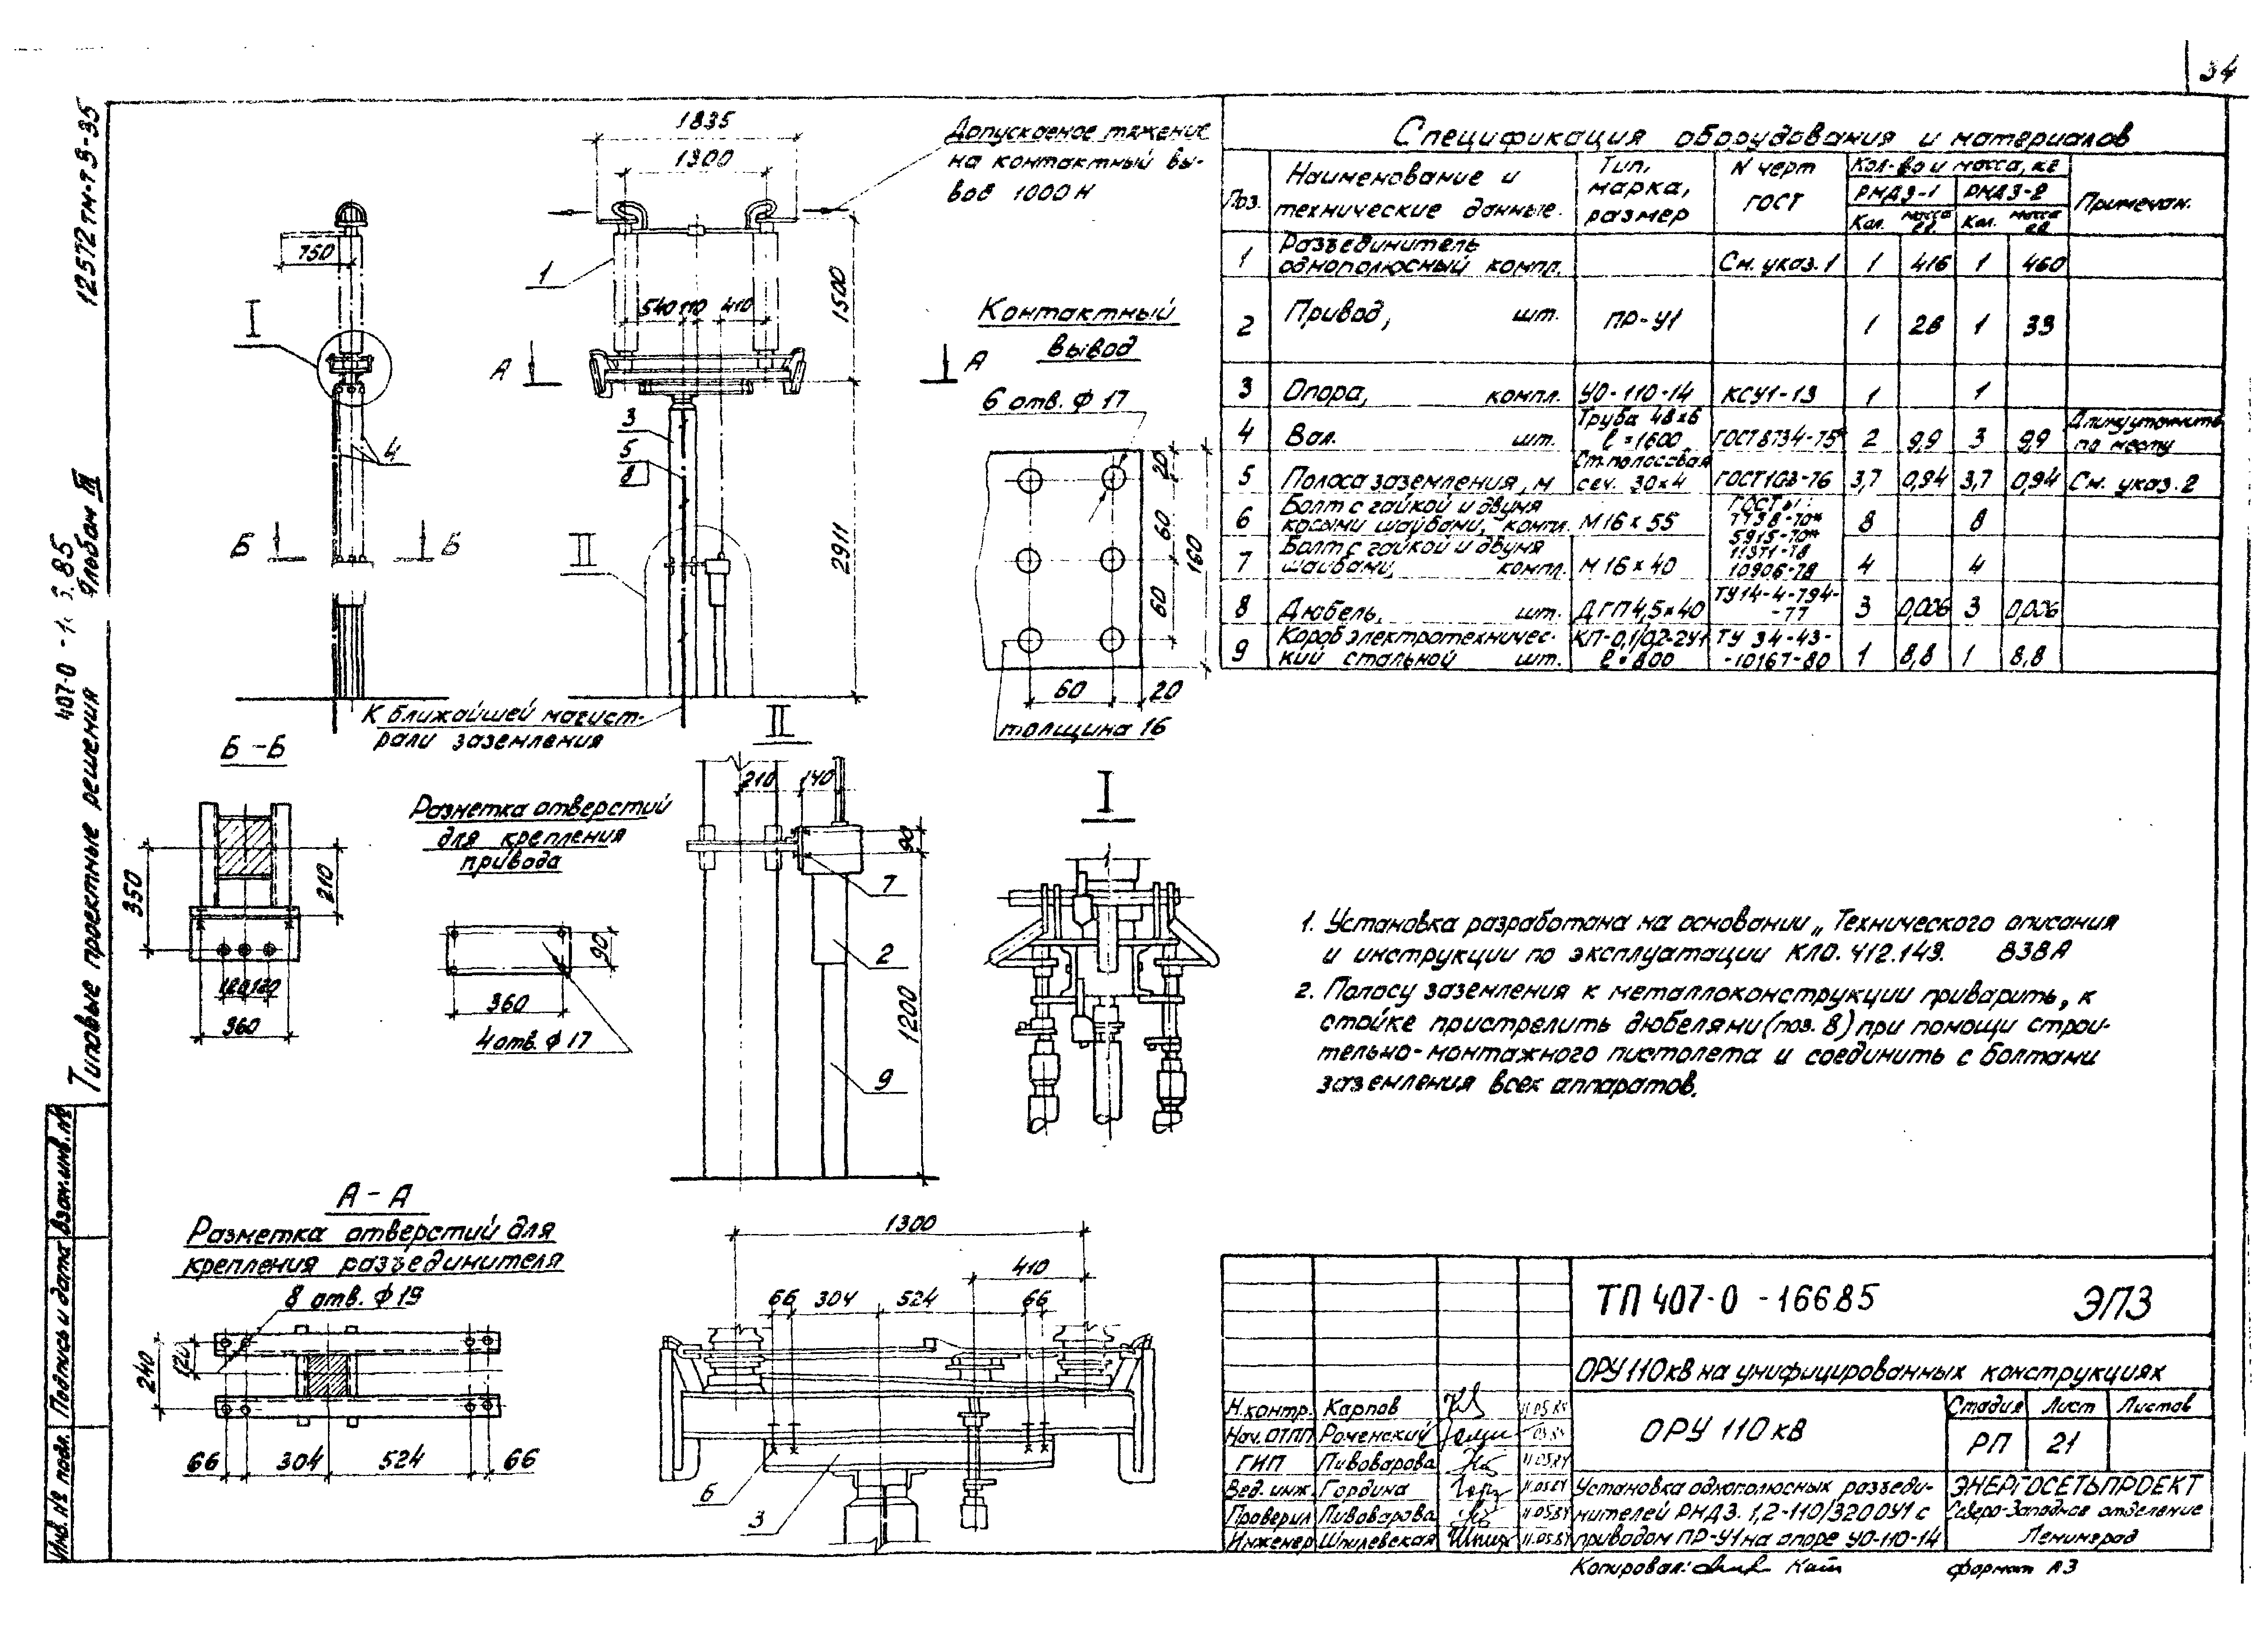 34
12572тм-т3-35
407-0-1 3.85
Альбом III
Типовые проектные решения
Взам.инв.№
Подпись и дата
Инв.№ подл.
1835
1300
Допускаемое тяжение
на контактный вы-
вод 1000 Н
750
I
1
540 110 410
1500
А
А
4
3
5
8
Б
Б
II
2911
К ближайшей магист-
рали заземления
Контактный
вывод
6 отв. ф 17
20
60
160
60
60
20
толщина 16
Б-Б
350
210
120 120
360
Разметка отверстий
для крепления
привода
90
360
4 отв. ф 17
II
210
140
90
7
2
1200
9
I
А-А
Разметка отверстий для
крепления разъединителя
8 отв. ф 19
240
120
66
304
524
66
1300
410
66
304
524
66
6
3
Спецификация оборудования и материалов
Поз.
Наименование и
технические данные.
Тип,
марка,
размер
N черт
ГОСТ
Кол-во и масса, кг
РНДЗ-1
РНДЗ-2
Кол.
масса
ед
Кол.
масса
ед
Примечан.
1 Разъединитель
однополюсный компл. См. указ.1 1 416 1 460
2 Привод, шт. ПР-У1 1 28 1 33
3 Опора, компл. УО-110-14 КСУ1-13 1 1
4 Вал. шт. Труба 48х6
ℓ=1600 ГОСТ 8734-75* 2 9,9 3 9,9 Длину уточнить
по месту
5 Полоса заземления, м Ст. полосовая
сеч. 30х4 ГОСТ 103-76 3,7 0,94 3,7 0,94 См. указ. 2
6 Болт с гайкой и двумя
косыми шайбами, компл. М16х55 8 8
ГОСТ'ы:
7798-70*
5915-70*
11371-78
10906-78
7 Болт с гайкой и двумя
шайбами, компл. М16х40 4 4
8 Дюбель, шт. ДГП 4,5х40 ТУ14-4-794-
-77 3 0,006 3 0,006
9 Короб электротехничес-
кий стальной шт. КП-0,1/02-2У1
ℓ=800 ТУ 34-43-
-10167-80 1 8,8 1 8,8
1. Установка разработана на основании „Технического описания
и инструкции по эксплуатации КЛО. 412.143. 838А
2. Полосу заземления к металлоконструкции приварить, к
стойке пристрелить дюбелями (поз. 8) при помощи строи-
тельно-монтажного пистолета и соединить с болтами
заземления всех аппаратов.
ТП 407-0-166.85 ЭПЗ
ОРУ 110 кВ на унифицированных конструкциях
ОРУ 110 кВ
Стадия Лист Листов
РП 21
Н.контр. Карпов
Нач.ОТПП Роменский
ГИП Пивоварова
Вед. инж. Гордина
Проверил Пивоварова
Инженер Шпилевская
Установка однополюсных разъеди-
нителей РНДЗ. 1,2-110/3200У1 с
приводом ПР-У1 на опоре УО-110-14
ЭНЕРГОСЕТЬПРОЕКТ
Северо-Западное отделение
Ленинград
Копировал:
формат А3